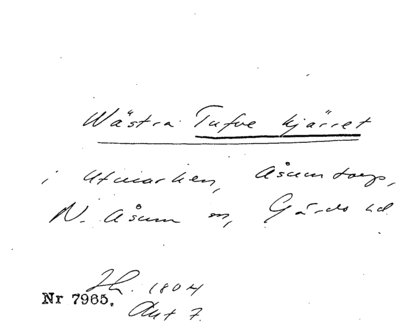 Wästra Tufve kjärret
i Utmarken, Åsumtorp,
N. Åsum sn, Gärds hd.
Nr 7965.
Lh. 1804
Akt 7.